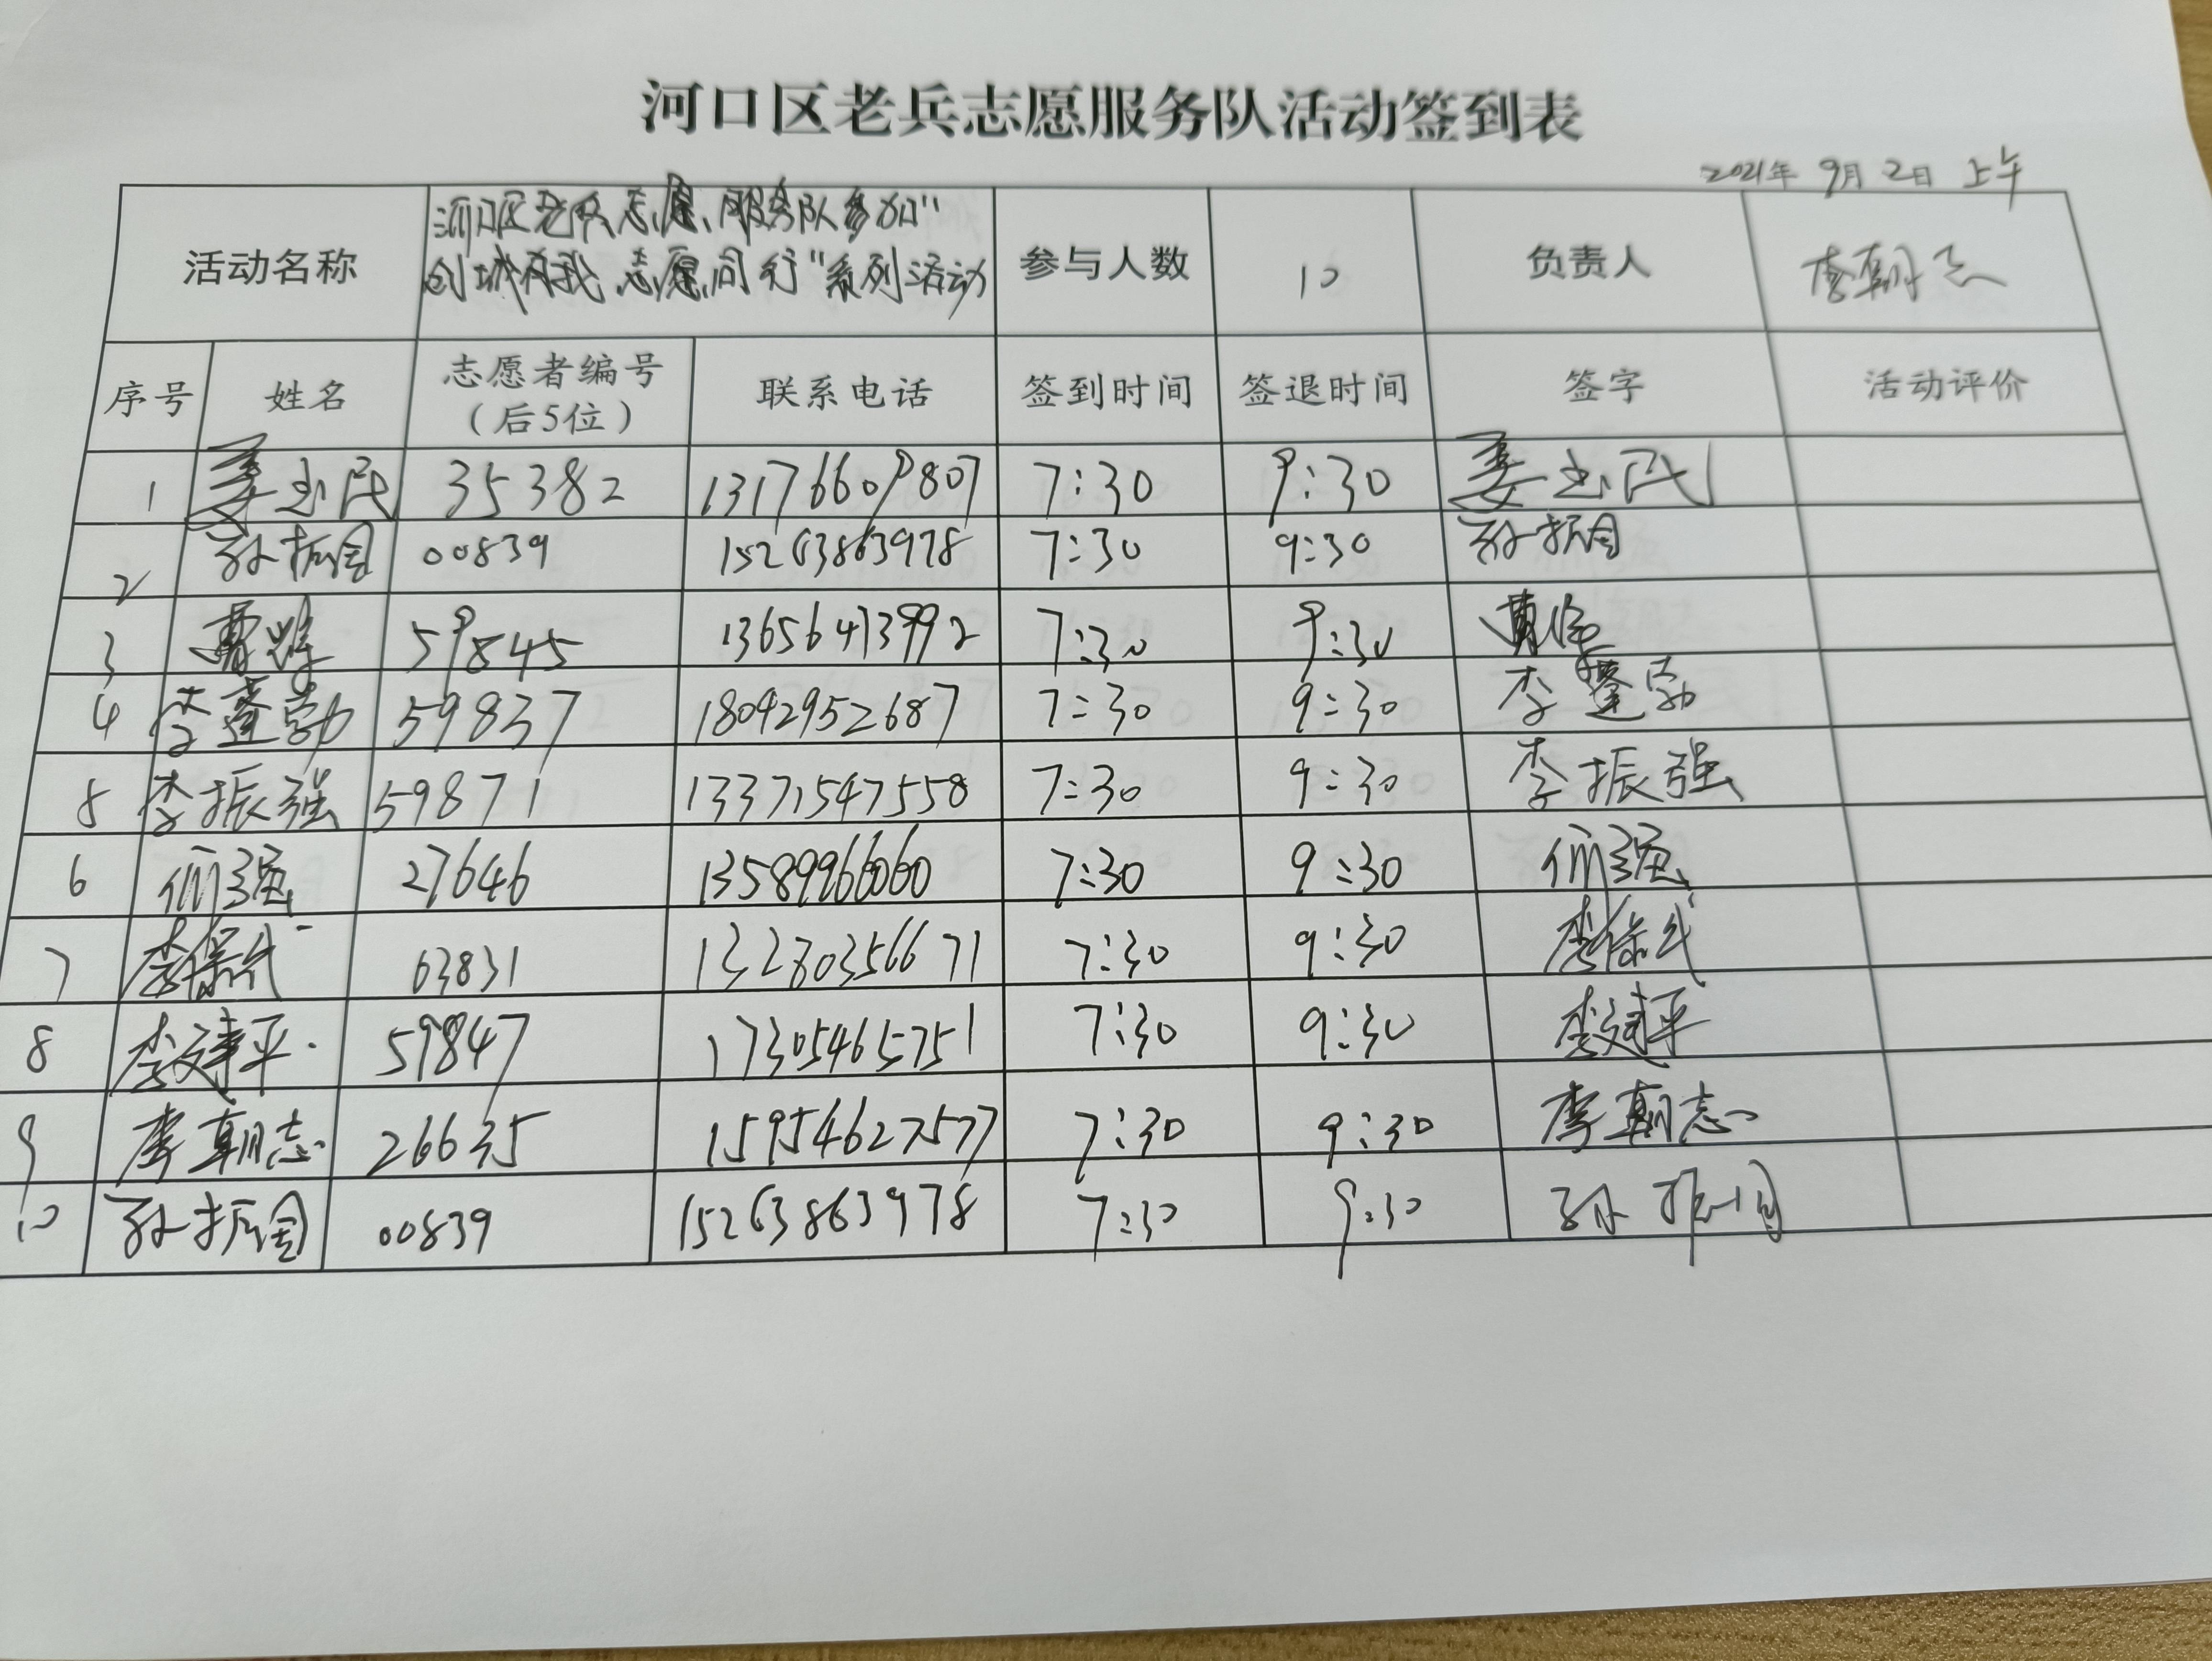 河口区老兵志愿服务队活动签到表
2021年 9月 2日 上午
活动名称 河口区老兵志愿服务队参加"创城有我 志愿同行"系列活动 参与人数 10 负责人 李朝志
序号 姓名 志愿者编号（后5位） 联系电话 签到时间 签退时间 签字 活动评价
1 姜玉民 35382 13176609807 7:30 9:30 姜玉民
2 孙振国 00839 15263863978 7:30 9:30 孙振国
3 59845 13656473992 7:30 9:30
4 李蓬勃 59837 18042952687 7:30 9:30 李蓬勃
5 李振强 59871 13371547558 7:30 9:30 李振强
6 27646 13589966060 7:30 9:30
7 李保代 63831 13280356671 7:30 9:30 李保代
8 李建平 59847 17305465751 7:30 9:30 李建平
9 李朝志 26635 15954627577 7:30 9:30 李朝志
10 孙振国 00839 15263863978 7:30 9:30 孙振国